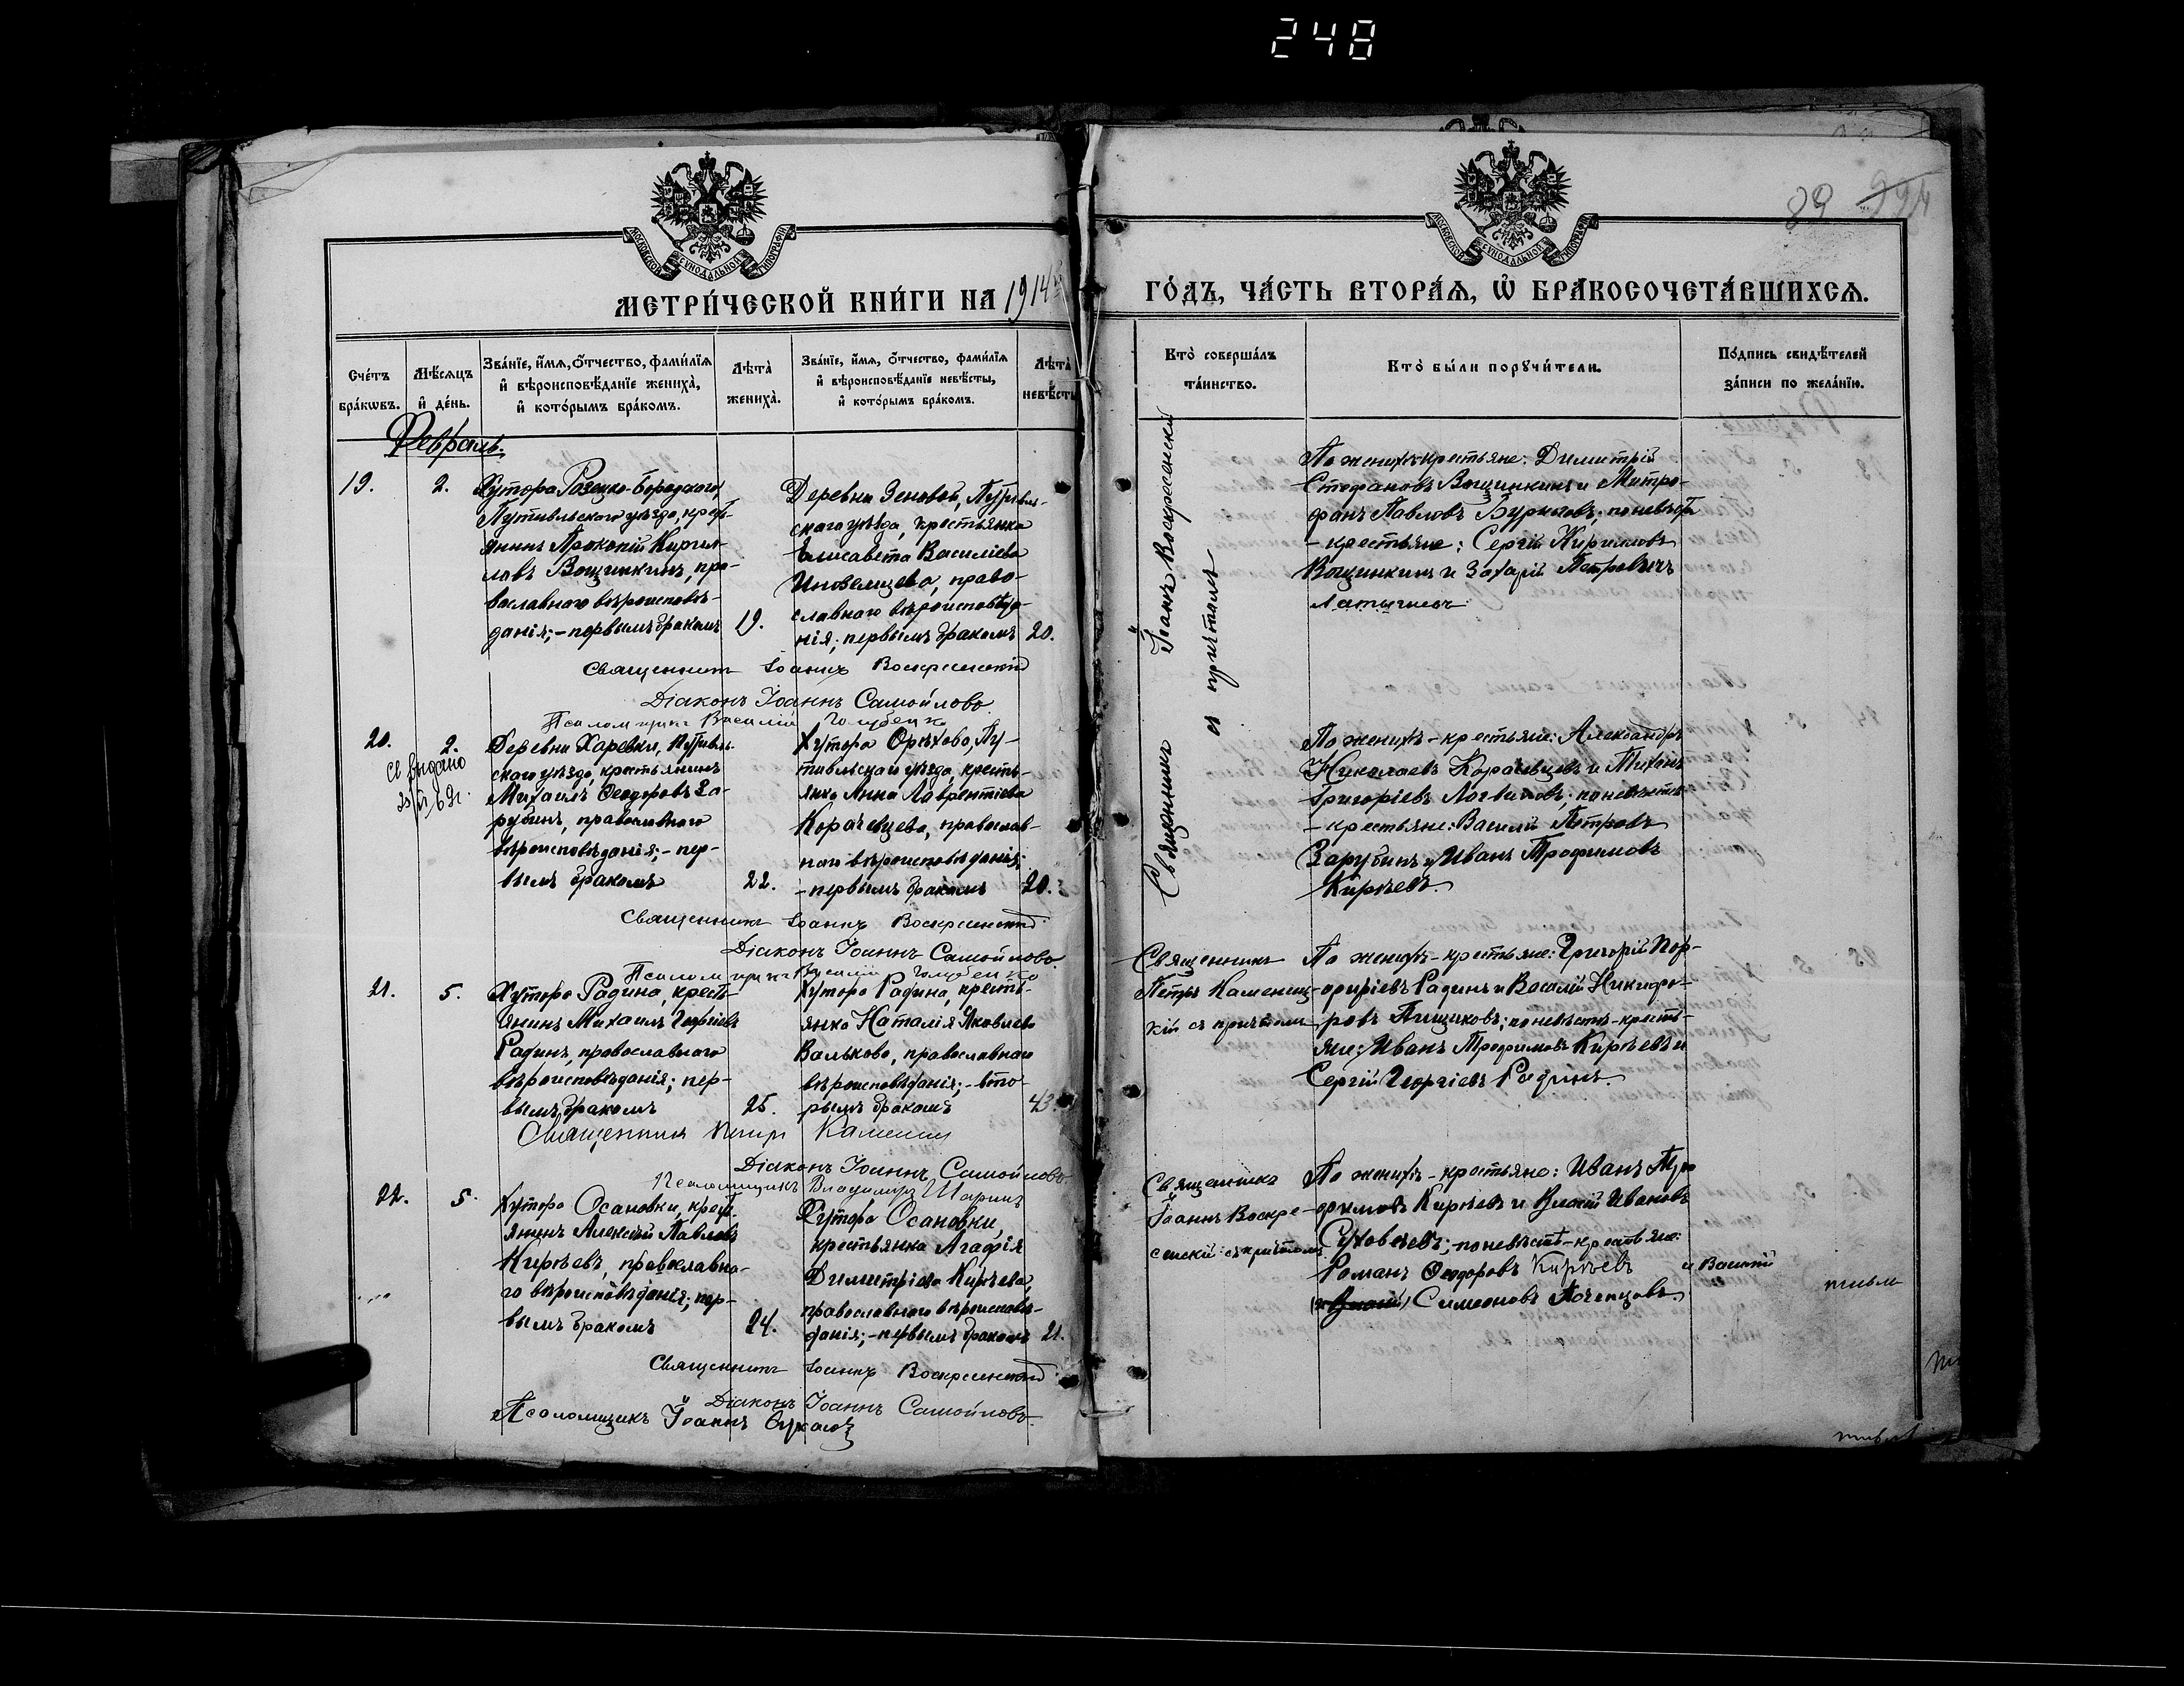 248
89 994
МЕТРИ́ЧЕСКОЙ КНИ́ГИ НА 1914й ГО́ДЪ, ЧА́СТЬ ВТОРА́Я, Ѡ҆ БРАКОСОЧЕТА́ВШИХСѦ.
Сче́тъ бра́кѡвъ.
Мѣ́сяцъ и҆ де́нь.
Зва́нїе, и҆́мя, ѻ҆́тчество, фами́лїя и҆ вѣроисповѣ́данїе жениха̀, и҆ кото́рымъ бра́комъ.
Лѣта̀ жениха̀.
Зва́нїе, и҆́мя, ѻ҆́тчество, фами́лїя и҆ вѣроисповѣ́данїе невѣ́сты, и҆ кото́рымъ бра́комъ.
Лѣта̀ невѣ́сты
Кто̀ соверша́лъ та́инство.
Кто̀ бы́ли порꙋчи́тели.
По́дпись свидѣ́телей за́писи по жела́нїю.
Февраль.
19.
2.
Хутора
Путивльскаго уѣзда, кресть-
янинъ Прокопій Кирил-
ловъ Вощинкинъ, пра-
вославнаго вѣроисповѣ-
данія; - первымъ бракомъ
19.
Деревни Зеновой, Путивль-
скаго уѣзда, крестьянка
Елисавета Василіева
право-
славнаго вѣроисповѣда-
нія; первымъ бракомъ
20.
Священникъ Іоаннъ Воскресенскій
и причтомъ
По женихѣ крестьяне: Димитрій
Стефановъ Вощинкинъ и Митро-
фанъ Павловъ Бурыковъ; по невѣстѣ
- крестьяне: Сергій Кирилловъ
Вощинкинъ и Захарій Петровичъ
Латышевъ
Священникъ Іоаннъ Воскресенскій
Діаконъ Іоаннъ Самойловъ.
Псаломщикъ Василій Голубенко
20.
2.
Св. выдано
Деревни Харевки, Путивль-
скаго уѣзда, крестьянинъ
Михаилъ Ѳеодоровъ За-
рубинъ, православнаго
вѣроисповѣданія; - пер-
вымъ бракомъ
22.
Хутора Орѣхова, Пу-
тивльскаго уѣзда, кресть-
янка Анна Лаврентіева
Корачевцева, православ-
наго вѣроисповѣданія;
- первымъ бракомъ
20.
По женихѣ - крестьяне: Александръ
Николаевъ Корачевцевъ и Тихонъ
Григоріевъ Логвиновъ; по невѣстѣ
- крестьяне: Василій Петровъ
Зарубинъ и Иванъ Трофимовъ
Кирѣевъ.
Священникъ Іоаннъ Воскресенскій
Діаконъ Іоаннъ Самойловъ
Псаломщикъ Василій Голубенко
21.
5.
Хутора Радина, кресть-
янинъ Михаилъ Георгіевъ
Радинъ, православнаго
вѣроисповѣданія; пер-
вымъ бракомъ
25.
Хутора Радина, кресть-
янка Наталія Яковлева
Валькова, православнаго
вѣроисповѣданія; - вто-
рымъ бракомъ
43.
Священникъ
Петръ Каменец-
кій съ причтомъ
По женихѣ - крестьяне: Григорій Пор-
фиріевъ Радинъ и Василій Никифо-
ровъ Пищиковъ; по невѣстѣ - кресть-
яне: Иванъ Трофимовъ Кирѣевъ и
Сергій Георгіевъ Радинъ.
Священникъ Петръ
Діаконъ Іоаннъ Самойловъ
Псаломщикъ Владимиръ Шаринъ
22.
5.
Хутора Осановки, кресть-
янинъ Алексѣй Павловъ
Кирѣевъ, православна-
го вѣроисповѣданія; пер-
вымъ бракомъ
24.
Хутора Осановки,
крестьянка Агафія
Димитріева Кирѣева,
православнаго вѣроисповѣ-
данія; - первымъ бракомъ
21.
Священникъ
Іоаннъ Воскре-
сенскій съ причтомъ
По женихѣ - крестьяне: Иванъ Тро-
фимовъ Кирѣевъ и Иванова
по невѣстѣ - крестьяне:
Романъ Ѳеодоровъ Кирѣевъ и Василій
Симеоновъ Почепцовъ.
Священникъ Іоаннъ Воскресенскій
Діаконъ Іоаннъ Самойловъ
Псаломщикъ Іоаннъ